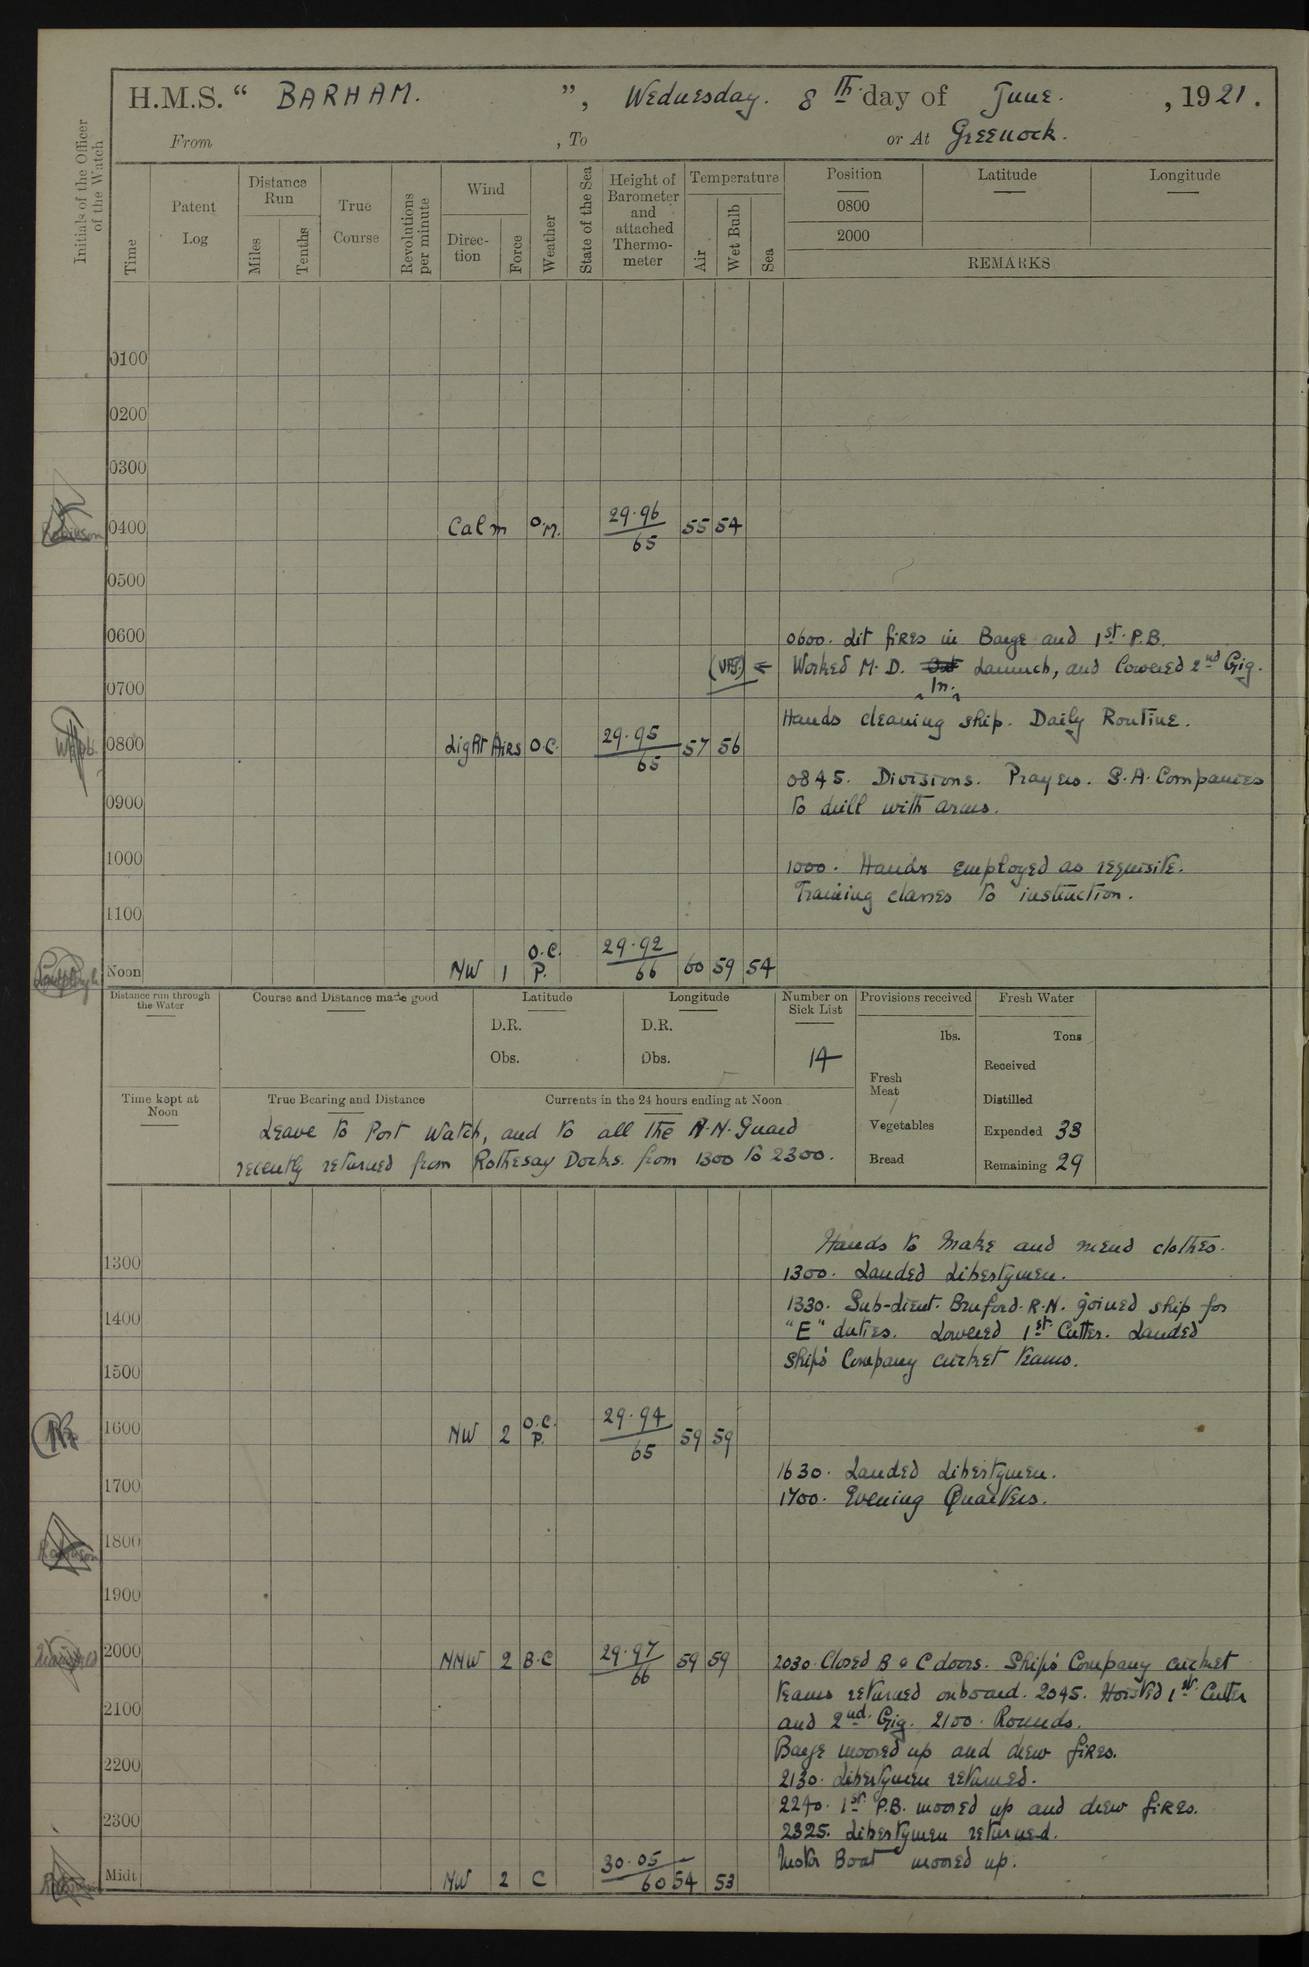 H.M.S. “ BARHAM. ”, Wednesday. 8th day of June. , 1921.
From , To or At Greenock.
Initials of the Officer of the Watch
Time
Patent Log
Distance Run
Miles
Tenths
True Course
Revolutions per minute
Wind
Direc-tion
Force
Weather
State of the Sea
Height of Barometer and attached Thermo-meter
Temperature
Air
Wet Bulb
Sea
Position Latitude Longitude
0800
2000
REMARKS
0100
0200
0300
Robinson 0400 Calm O.M. 29.96 65 55 54
0500
0600 0600. Lit fires in Barge and 1st P.B.
Worked M.D. In. Launch, and Lowered 2nd Gig.
0700
Hands cleaning ship. Daily Routine.
0800 Light Airs O.C. 29.95 65 57 56
0845. Divisions. Prayers. S.A. Companies
0900 to drill with arms.
1000 1000. Hands employed as requisite.
Training classes to instruction.
1100
Noon NW 1 O.C. P. 29.92 66 60 59 54
Distance run through the Water
Course and Distance made good
Latitude
D.R.
Obs.
Longitude
D.R.
Obs.
Number on Sick List
14
Provisions received
lbs.
Fresh Meat
Vegetables
Bread
Fresh Water
Tons
Received
Distilled
Expended 33
Remaining 29
Time kept at Noon
True Bearing and Distance
Currents in the 24 hours ending at Noon
Leave to Port Watch, and to all the R.N. Guard
recently returned from Rothesay Docks. from 1300 to 2300.
Hands to Make and mend clothes.
1300 1300. Landed Libertymen.
1330. Sub-Lieut. Bruford. R.N. joined ship for
1400 "E" duties. Lowered 1st Cutter. Landed
Ship's Company cricket teams.
1500
1600 NW 2 O.C. P. 29.94 65 59 59
1630. Landed Libertymen.
1700 1700. Evening Quarters.
Robinson 1800
1900
2000 NNW 2 B.C 29.97 66 59 59 2030. Closed B & C doors. Ship's Company cricket
teams returned onboard. 2045. Hoisted 1st Cutter
2100 and 2nd Gig. 2100. Rounds.
Barge moored up and drew fires.
2200 2130. Libertymen returned.
2240. 1st P.B. moored up and drew fires.
2300 2325. Libertymen returned.
Motor Boat moored up.
Midt. Robinson NW 2 C 30.05 60 54 53